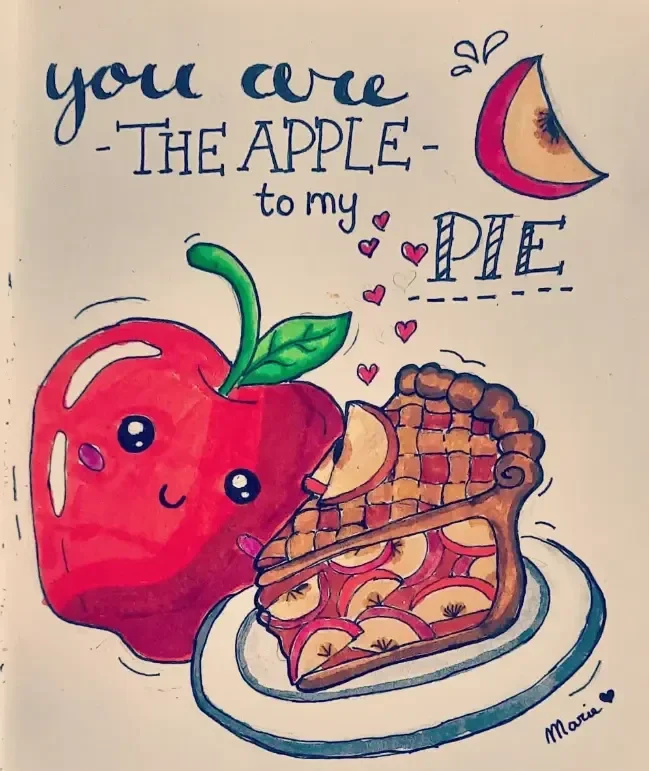 you are
- THE APPLE -
to my
PIE
Marie